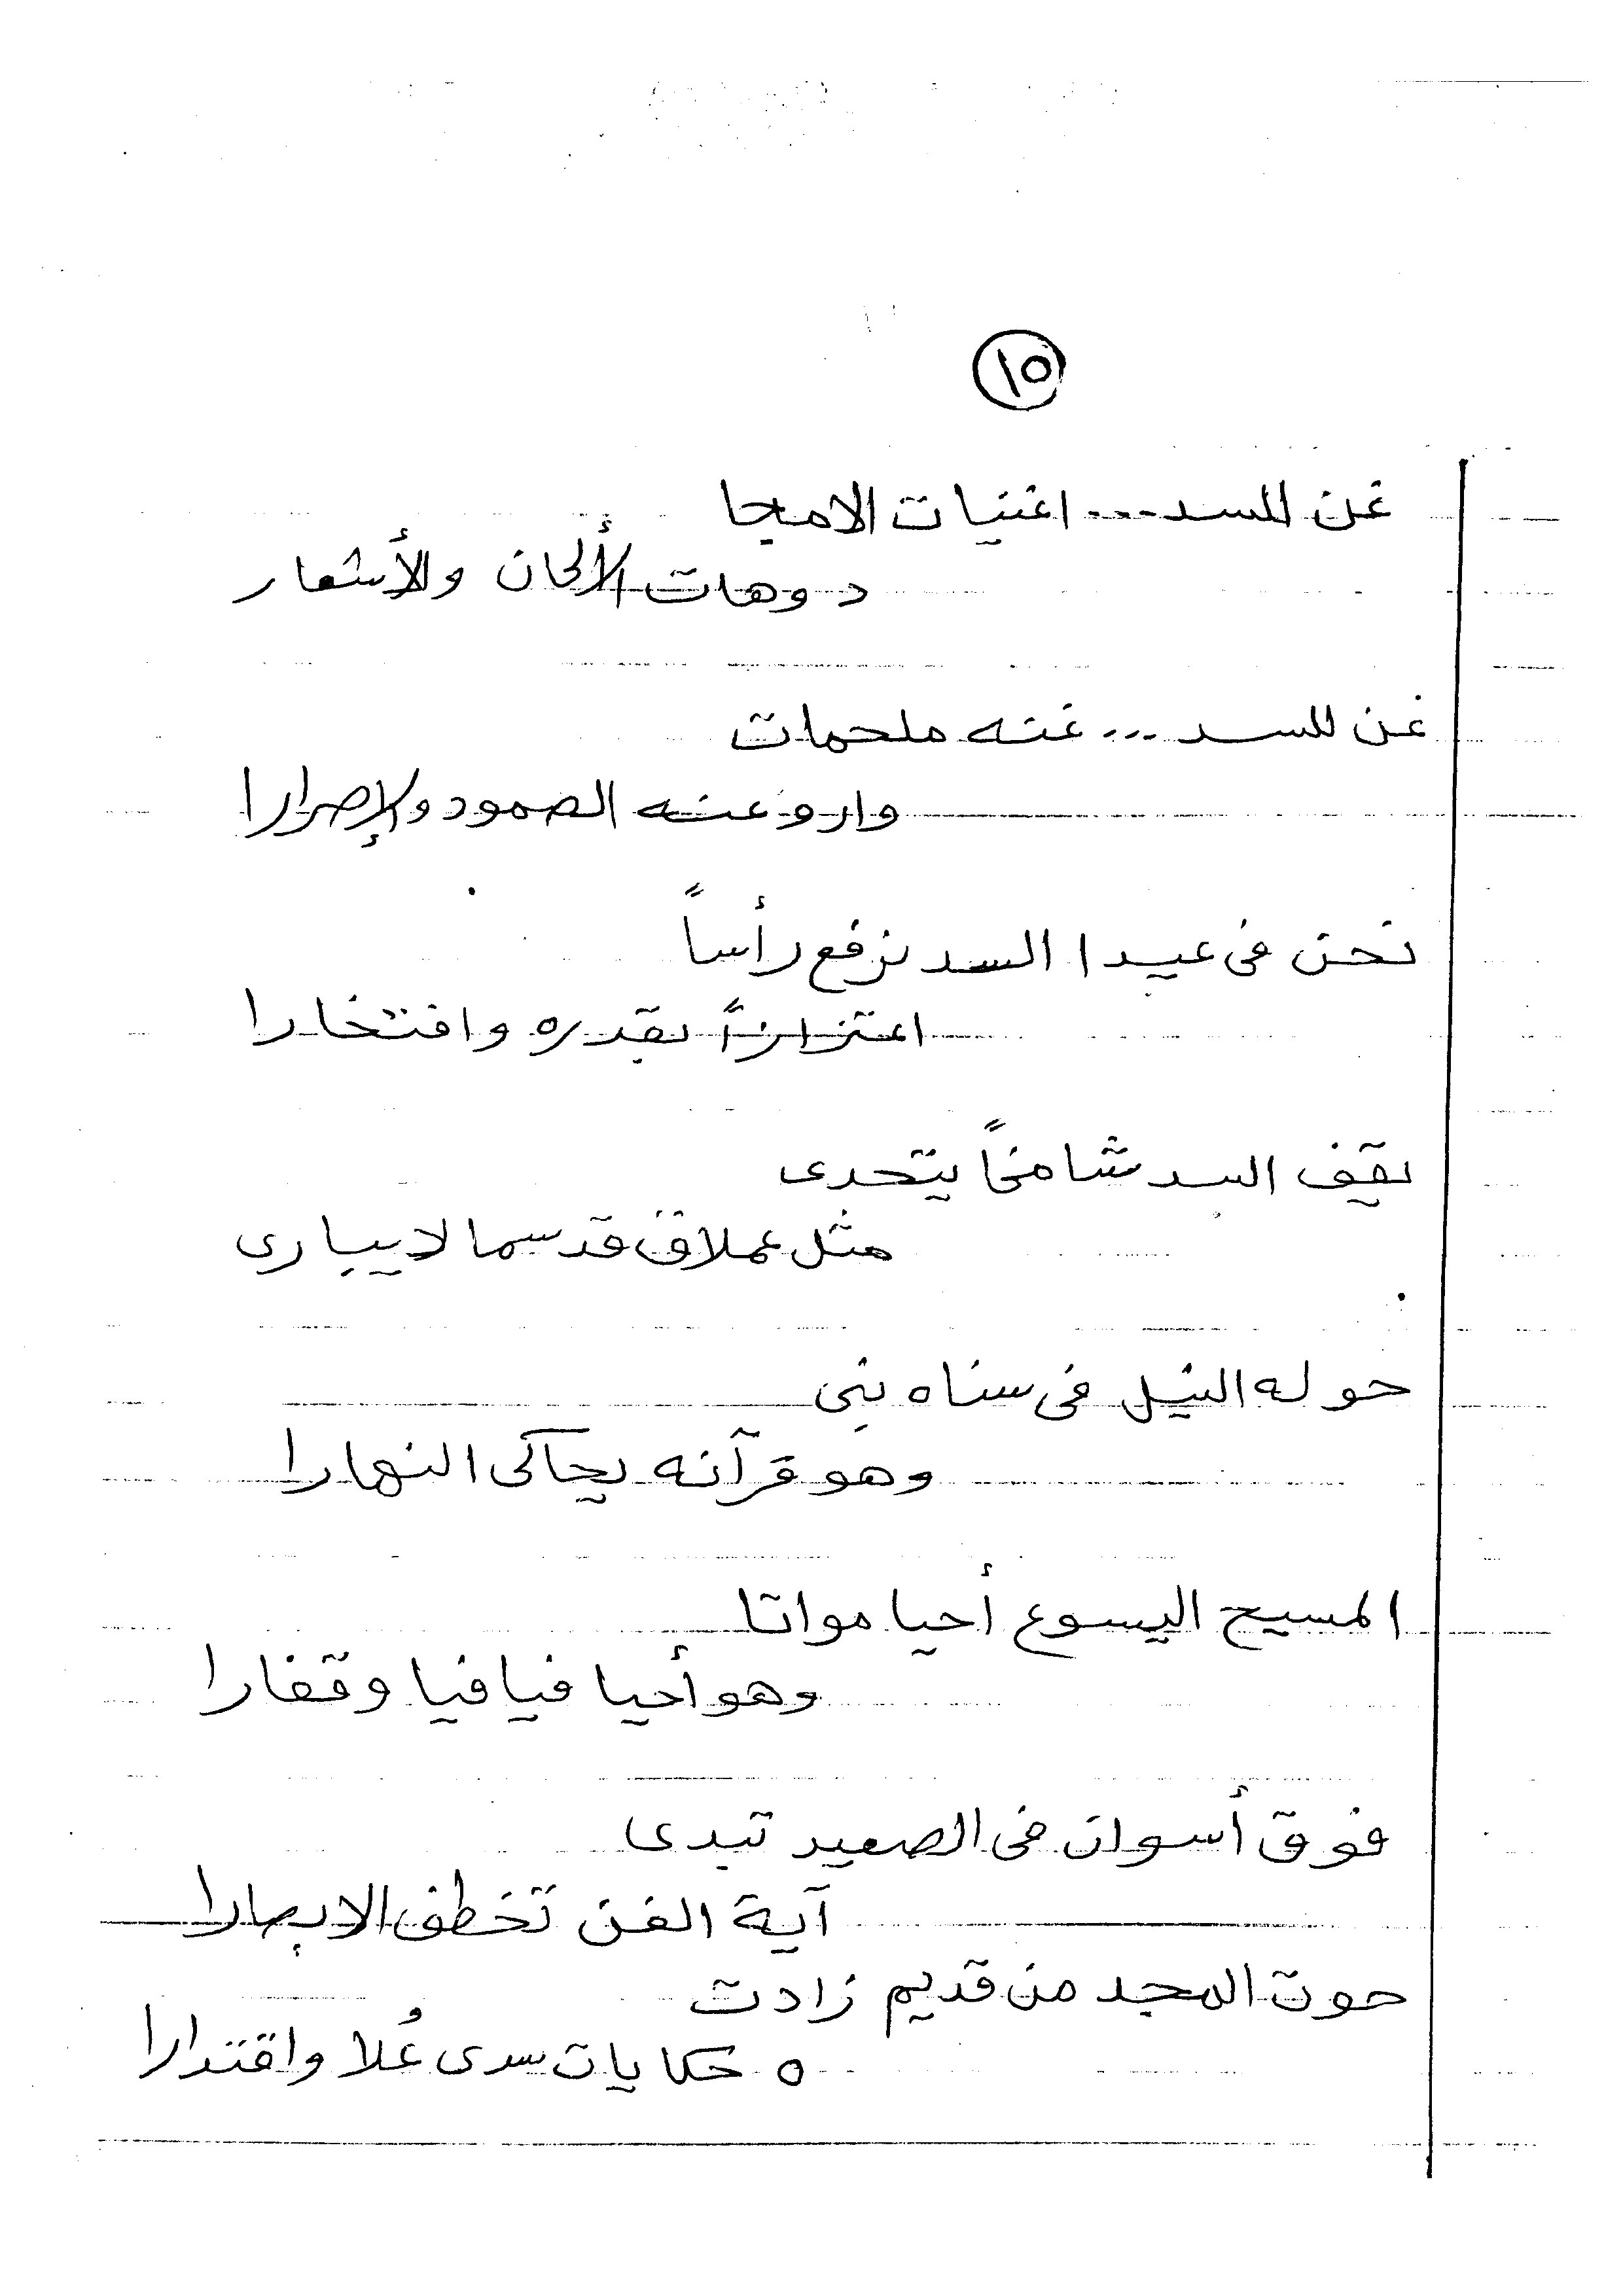 ١٥
غن للسد ... اغنيات الامجا
د وهات الألحان والأشعار
غن للسد ... غنه ملحمات
وارو عنه الصمود والإصرارا
نحن فى عيد السد نرفع رأساً
اعتزازاً بقدره وافتخارا
يقف السد شامخاً يتحدى
مثل عملاق قد سما لا يبارى
حوله النيل فى سناه نبى
وهو قرآنه يحاكى النهارا
المسيح اليسوع أحيا مواتا
وهو أحيا فيافيا وقفارا
فوق أسوان فى الصعيد تبدى
آية الفن تخطف الابصارا
حوت المجد من قديم زادت
ه حكايات سدى عُلا واقتدارا